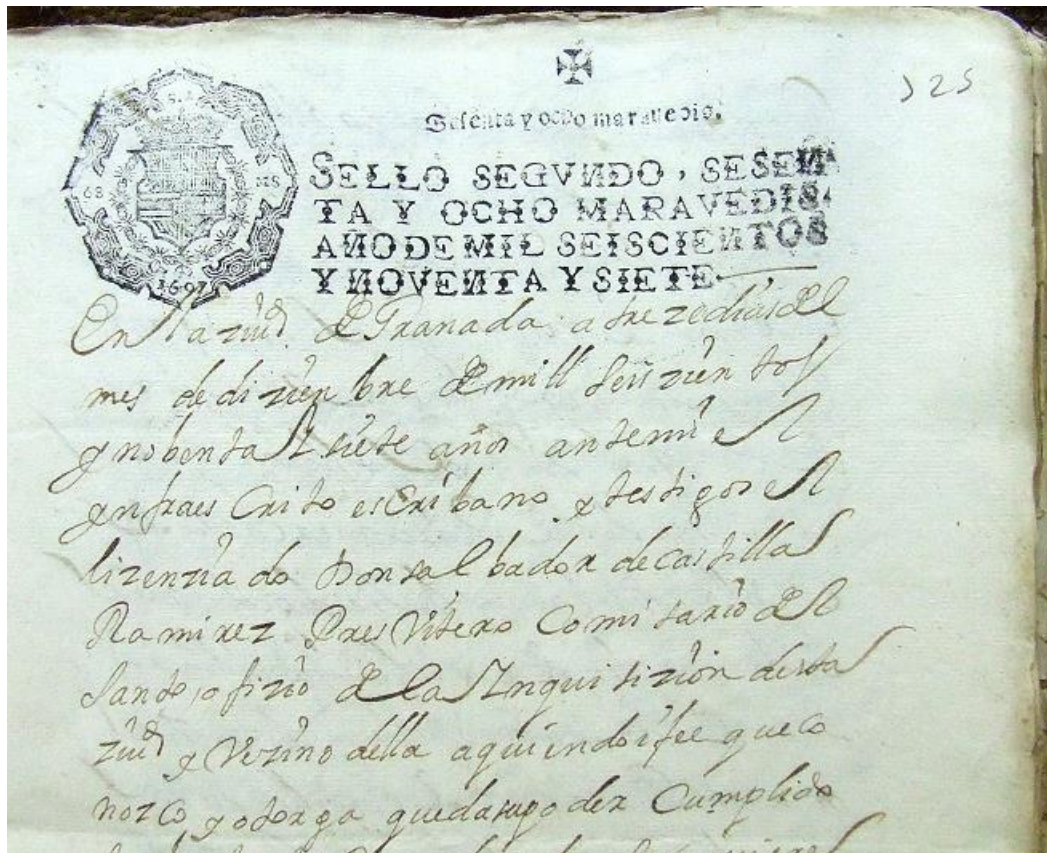 325
Sesenta y ocho maravedis.
SELLO SEGVNDO, SESEN
TA Y OCHO MARAVEDIS,
AÑO DE MIL SEISCIENTOS
Y NOVENTA Y SIETE.
1697
En la ziud de Granada a treze dias del
mes de dizienbre de mill seiszientos
y nobenta y siete años ante mi el
ynfraescrito escribano y testigos el
lizenziado Don salbador de castilla
Ramirez Presvitero Comisario del
santo ofizio de la Ynquisizion desta
ziud y vezino della a quien doi fee que co
nozco, y otorga que da su poder Cumplido